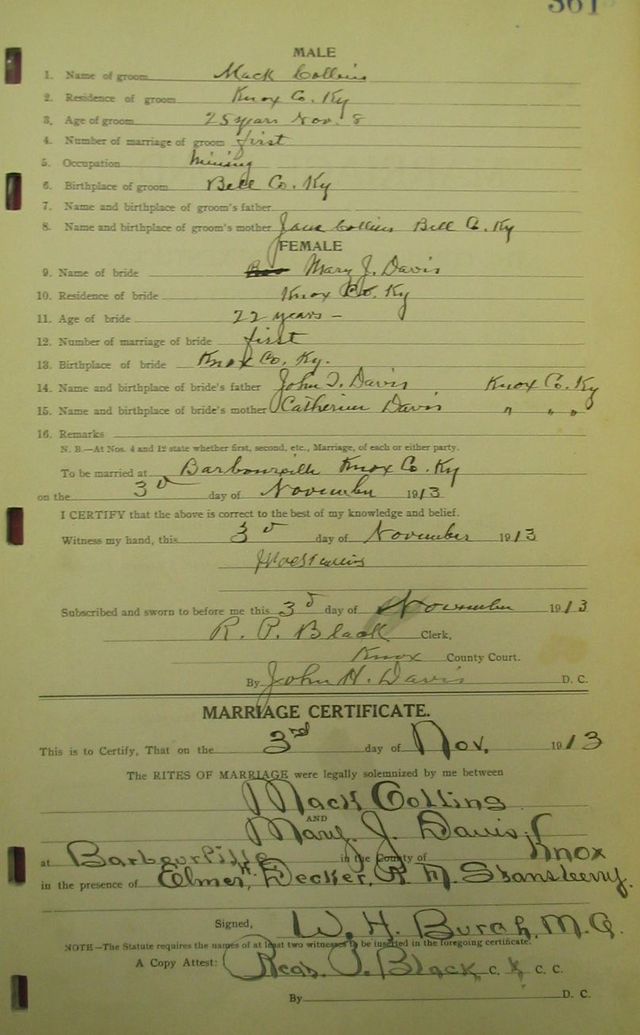 361
MALE
1. Name of groom Mack Collins
2. Residence of groom Knox Co. Ky
3. Age of groom 25 years Nov. 8
4. Number of marriage of groom first
5. Occupation Mining
6. Birthplace of groom Bell Co. Ky
7. Name and birthplace of groom's father
8. Name and birthplace of groom's mother Jane Collins Bell Co. Ky
FEMALE
9. Name of bride Mary J. Davis
10. Residence of bride Knox Co. Ky
11. Age of bride 22 years –
12. Number of marriage of bride first
13. Birthplace of bride Knox Co. Ky.
14. Name and birthplace of bride's father John T. Davis Knox Co. Ky
15. Name and birthplace of bride's mother Catherine Davis " " "
16. Remarks
N. B.—At Nos. 4 and 12 state whether first, second, etc., Marriage, of each or either party.
To be married at Barbourville Knox Co. Ky
on the 3d day of November 1913
I CERTIFY that the above is correct to the best of my knowledge and belief.
Witness my hand, this 3d day of November 1913
Collins
Subscribed and sworn to before me this 3d day of November 1913
R. P. Black Clerk,
Knox County Court.
By John H. Davis D. C.
MARRIAGE CERTIFICATE.
This is to Certify, That on the 3rd day of Nov. 1913
The RITES OF MARRIAGE were legally solemnized by me between
Mack Collins
AND
Mary J. Davis
at Barbourville in the County of Knox
in the presence of Elmer Decker, R. M. Stansberry.
Signed, W. H. Burch, M. G.
NOTE—The Statute requires the names of at least two witnesses to be inserted in the foregoing certificate.
A Copy Attest: Read P. Black C. K. C. C.
By D. C.